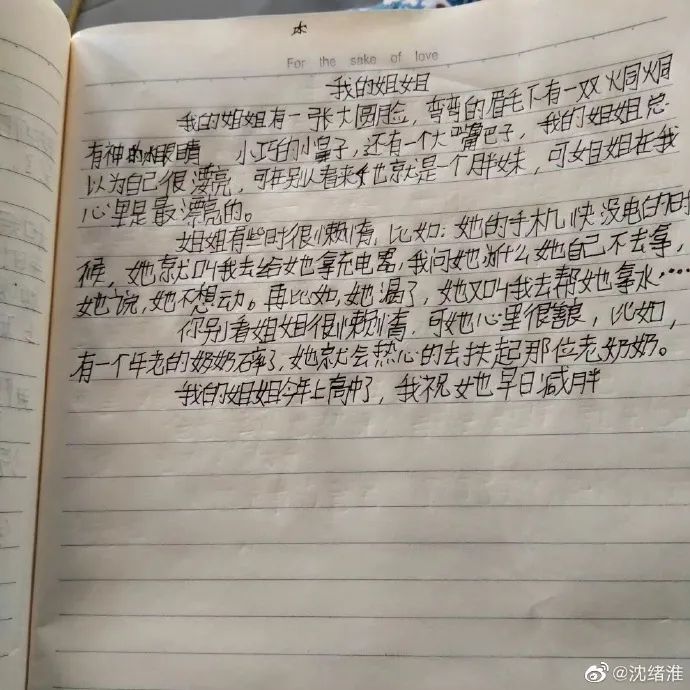 本
For the sake of love
我的姐姐
我的姐姐有一张大圆脸，弯弯的眉毛下有一双炯炯
有神的眼睛 小巧的小鼻子，还有一个大嘴巴子，我的姐姐总
以为自己很漂亮，可在别人看来她就是一个胖妹，可姐姐在我
心里是最漂亮的。
姐姐有些时很懒惰，比如：她的手机快没电的时
候，她就叫我去给她拿充电器，我问她为什么她自己不去拿，
她说，她不想动。再比如，她渴了，她又叫我去帮她拿水……
你别看姐姐很懒惰，可她心里很善良，比如，
有一个年老的奶奶摔了，她就会热心的去扶起那位老奶奶。
我的姐姐今年上高中了，我祝她早日减胖
@沈绪淮